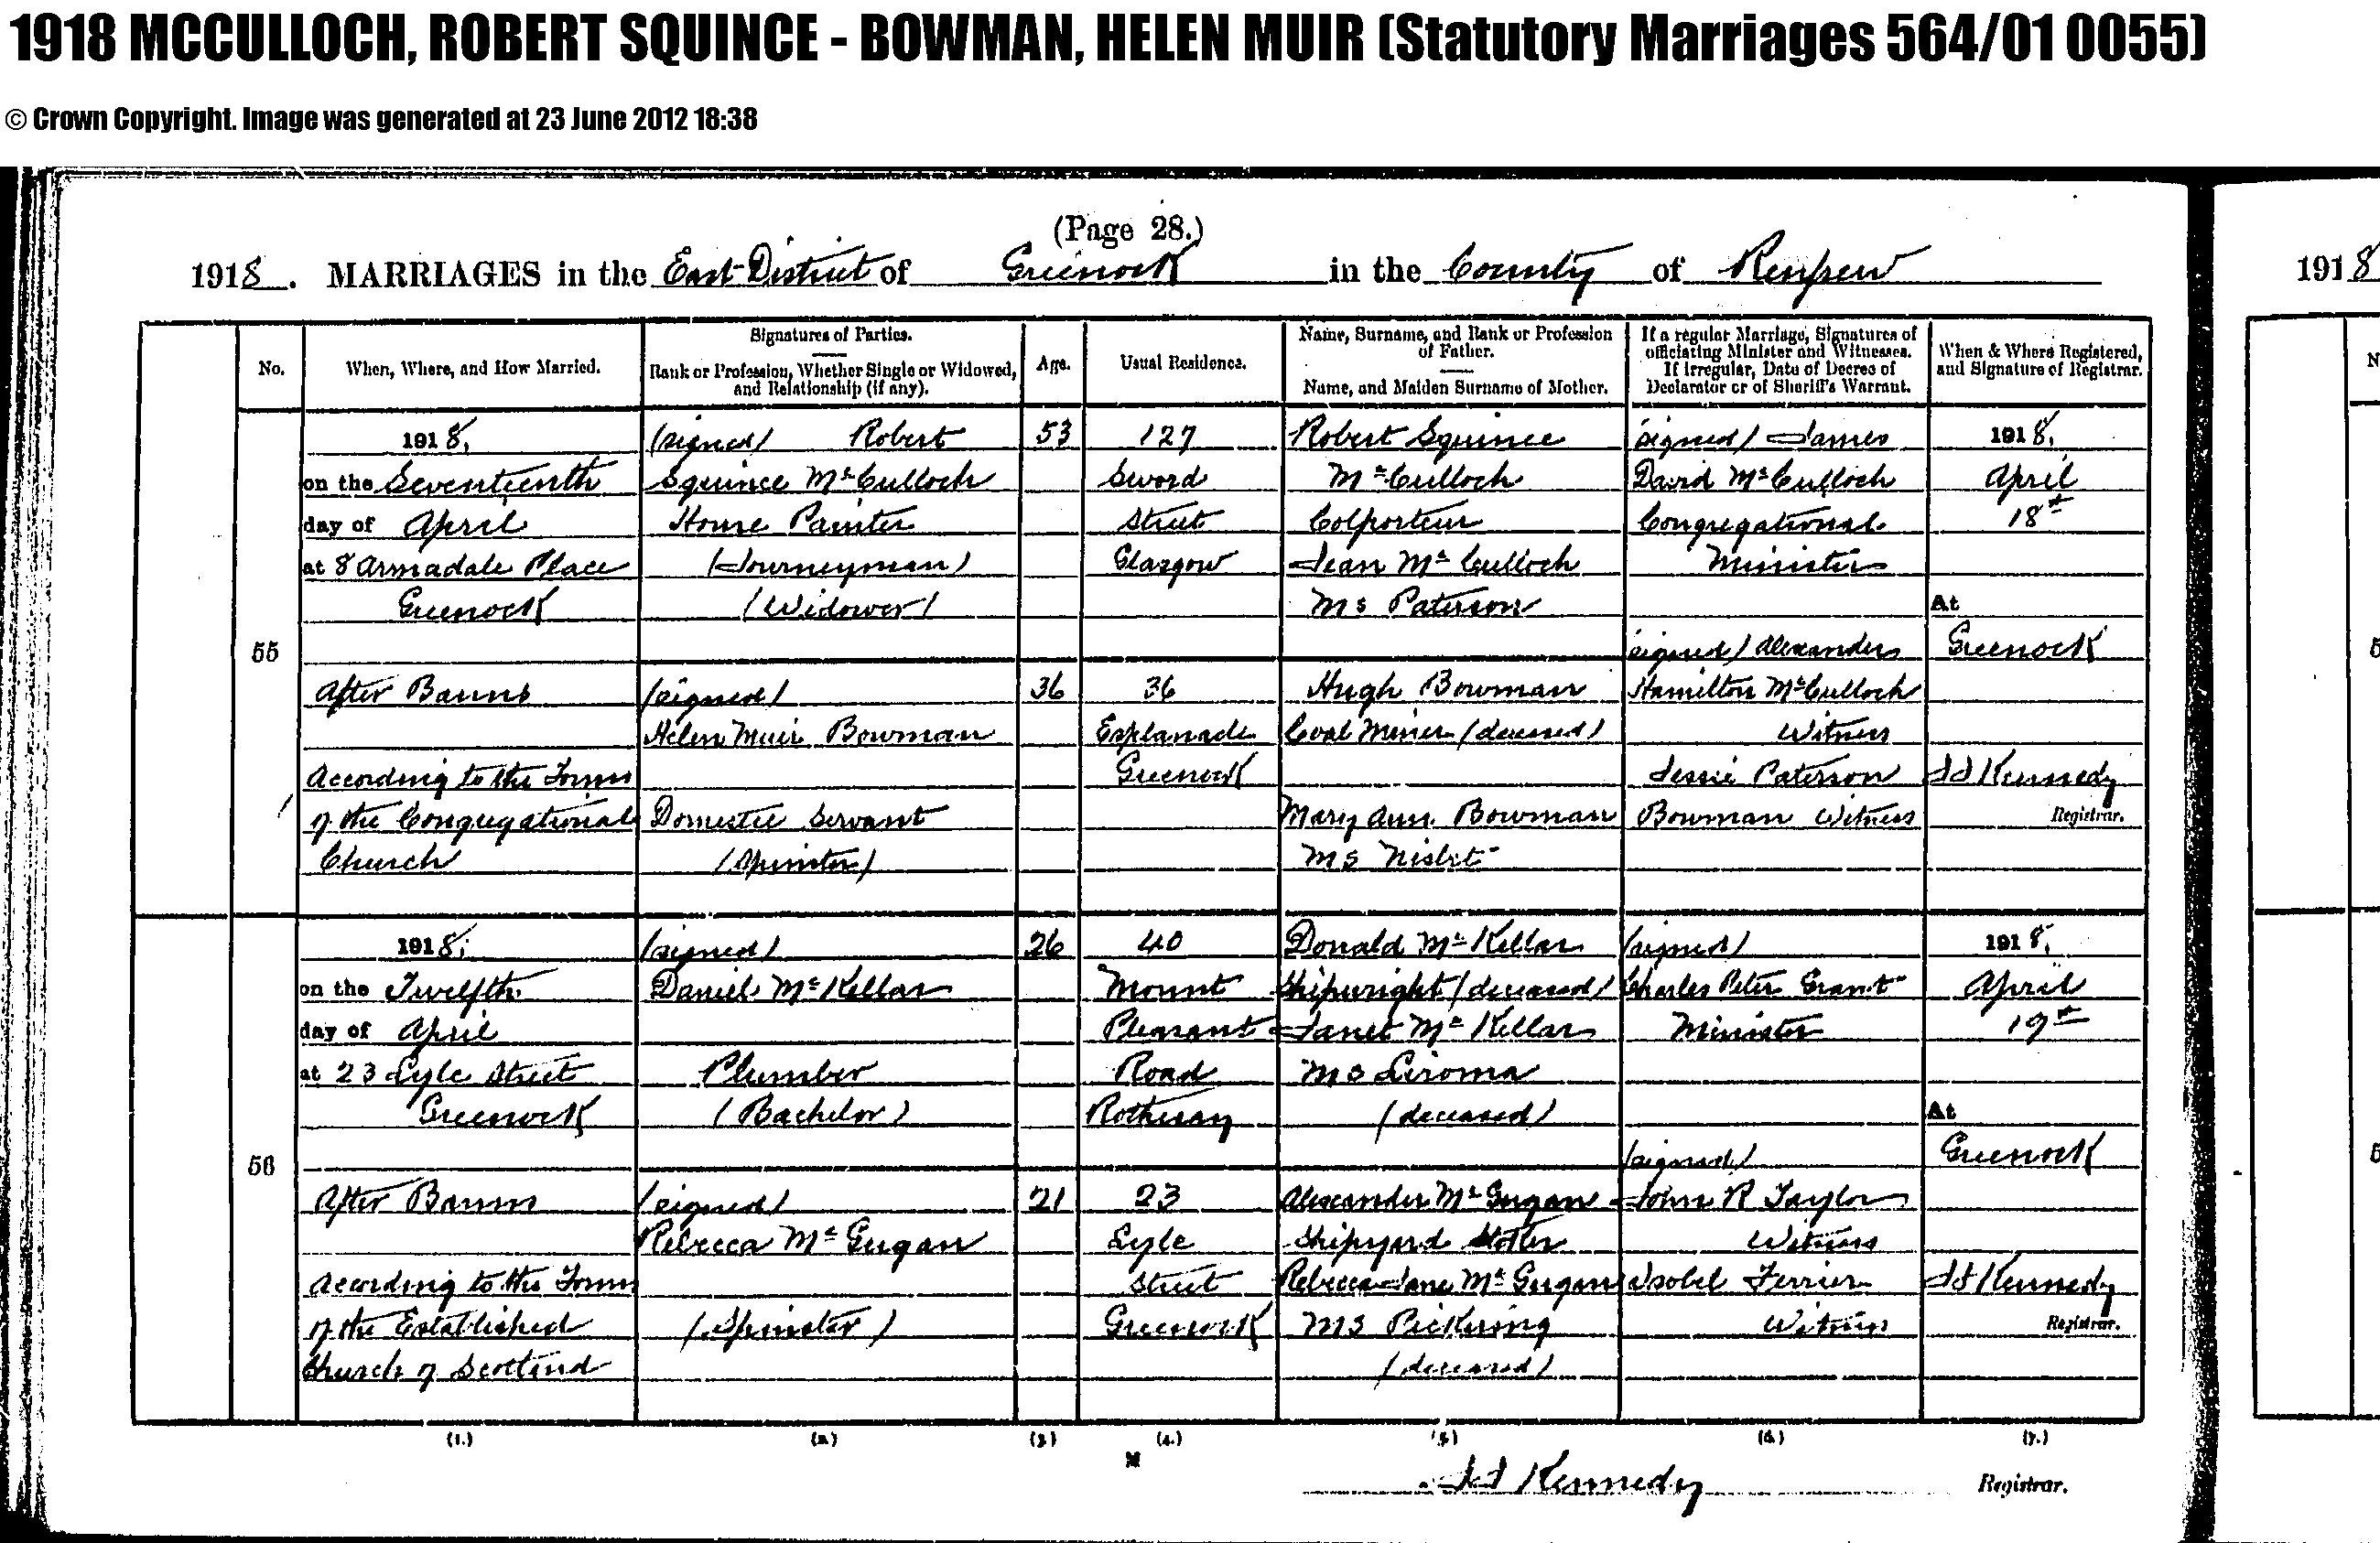 1918 MCCULLOCH, ROBERT SQUINCE - BOWMAN, HELEN MUIR (Statutory Marriages 564/01 0055)
© Crown Copyright. Image was generated at 23 June 2012 18:38
(Page 28.)
1918. MARRIAGES in the East District of Greenock in the County of Renfrew
1918
No.
When, Where, and How Married.
Signatures of Parties.
Rank or Profession, Whether Single or Widowed,
and Relationship (if any).
Age.
Usual Residence.
Name, Surname, and Rank or Profession
of Father.
Name, and Maiden Surname of Mother.
If a regular Marriage, Signatures of
officiating Minister and Witnesses.
If Irregular, Date of Decree of
Declarator or of Sheriff's Warrant.
When & Where Registered,
and Signature of Registrar.
55
1918,
on the Seventeenth
day of April
at 8 Armadale Place
Greenock
After Banns
According to the Forms
of the Congregational
Church
(signed) Robert
Squince McCulloch
House Painter
(Journeyman)
(Widower)
(signed)
Helen Muir Bowman
Domestic Servant
(Spinster)
53
36
127
Sword
Street
Glasgow
36
Esplanade
Greenock
Robert Squince
McCulloch
Colporteur
Jean McCulloch
MS Paterson
Hugh Bowman
Coal Miner (deceased)
Mary Ann Bowman
MS Nisbet
(signed) James
David McCulloch
Congregational
Minister
(signed) Alexander
Hamilton McCulloch
Witness
Jessie Paterson
Bowman Witness
1918,
April
18th
At
Greenock
Kennedy
Registrar.
56
1918,
on the Twelfth
day of April
at 23 Lyle Street
Greenock
After Banns
According to the Forms
of the Established
Church of Scotland
(signed)
Daniel McKellar
Plumber
(Bachelor)
(signed)
Rebecca McGugan
(Spinster)
26
21
40
Mount
Pleasant
Road
Rothesay
23
Lyle
Street
Greenock
Donald McKellar
Shipwright (deceased)
Janet McKellar
MS
(deceased)
Alexander McGugan
Shipyard
Rebecca Jane McGugan
MS Pickering
(deceased)
(signed)
Charles Peter Grant
Minister
(signed)
John R Taylor
Witness
Isobel Ferrier
Witness
1918,
April
19th
At
Greenock
Kennedy
Registrar.
(1.) (2.) (3.) (4.) (5.) (6.) (7.)
Kennedy Registrar.